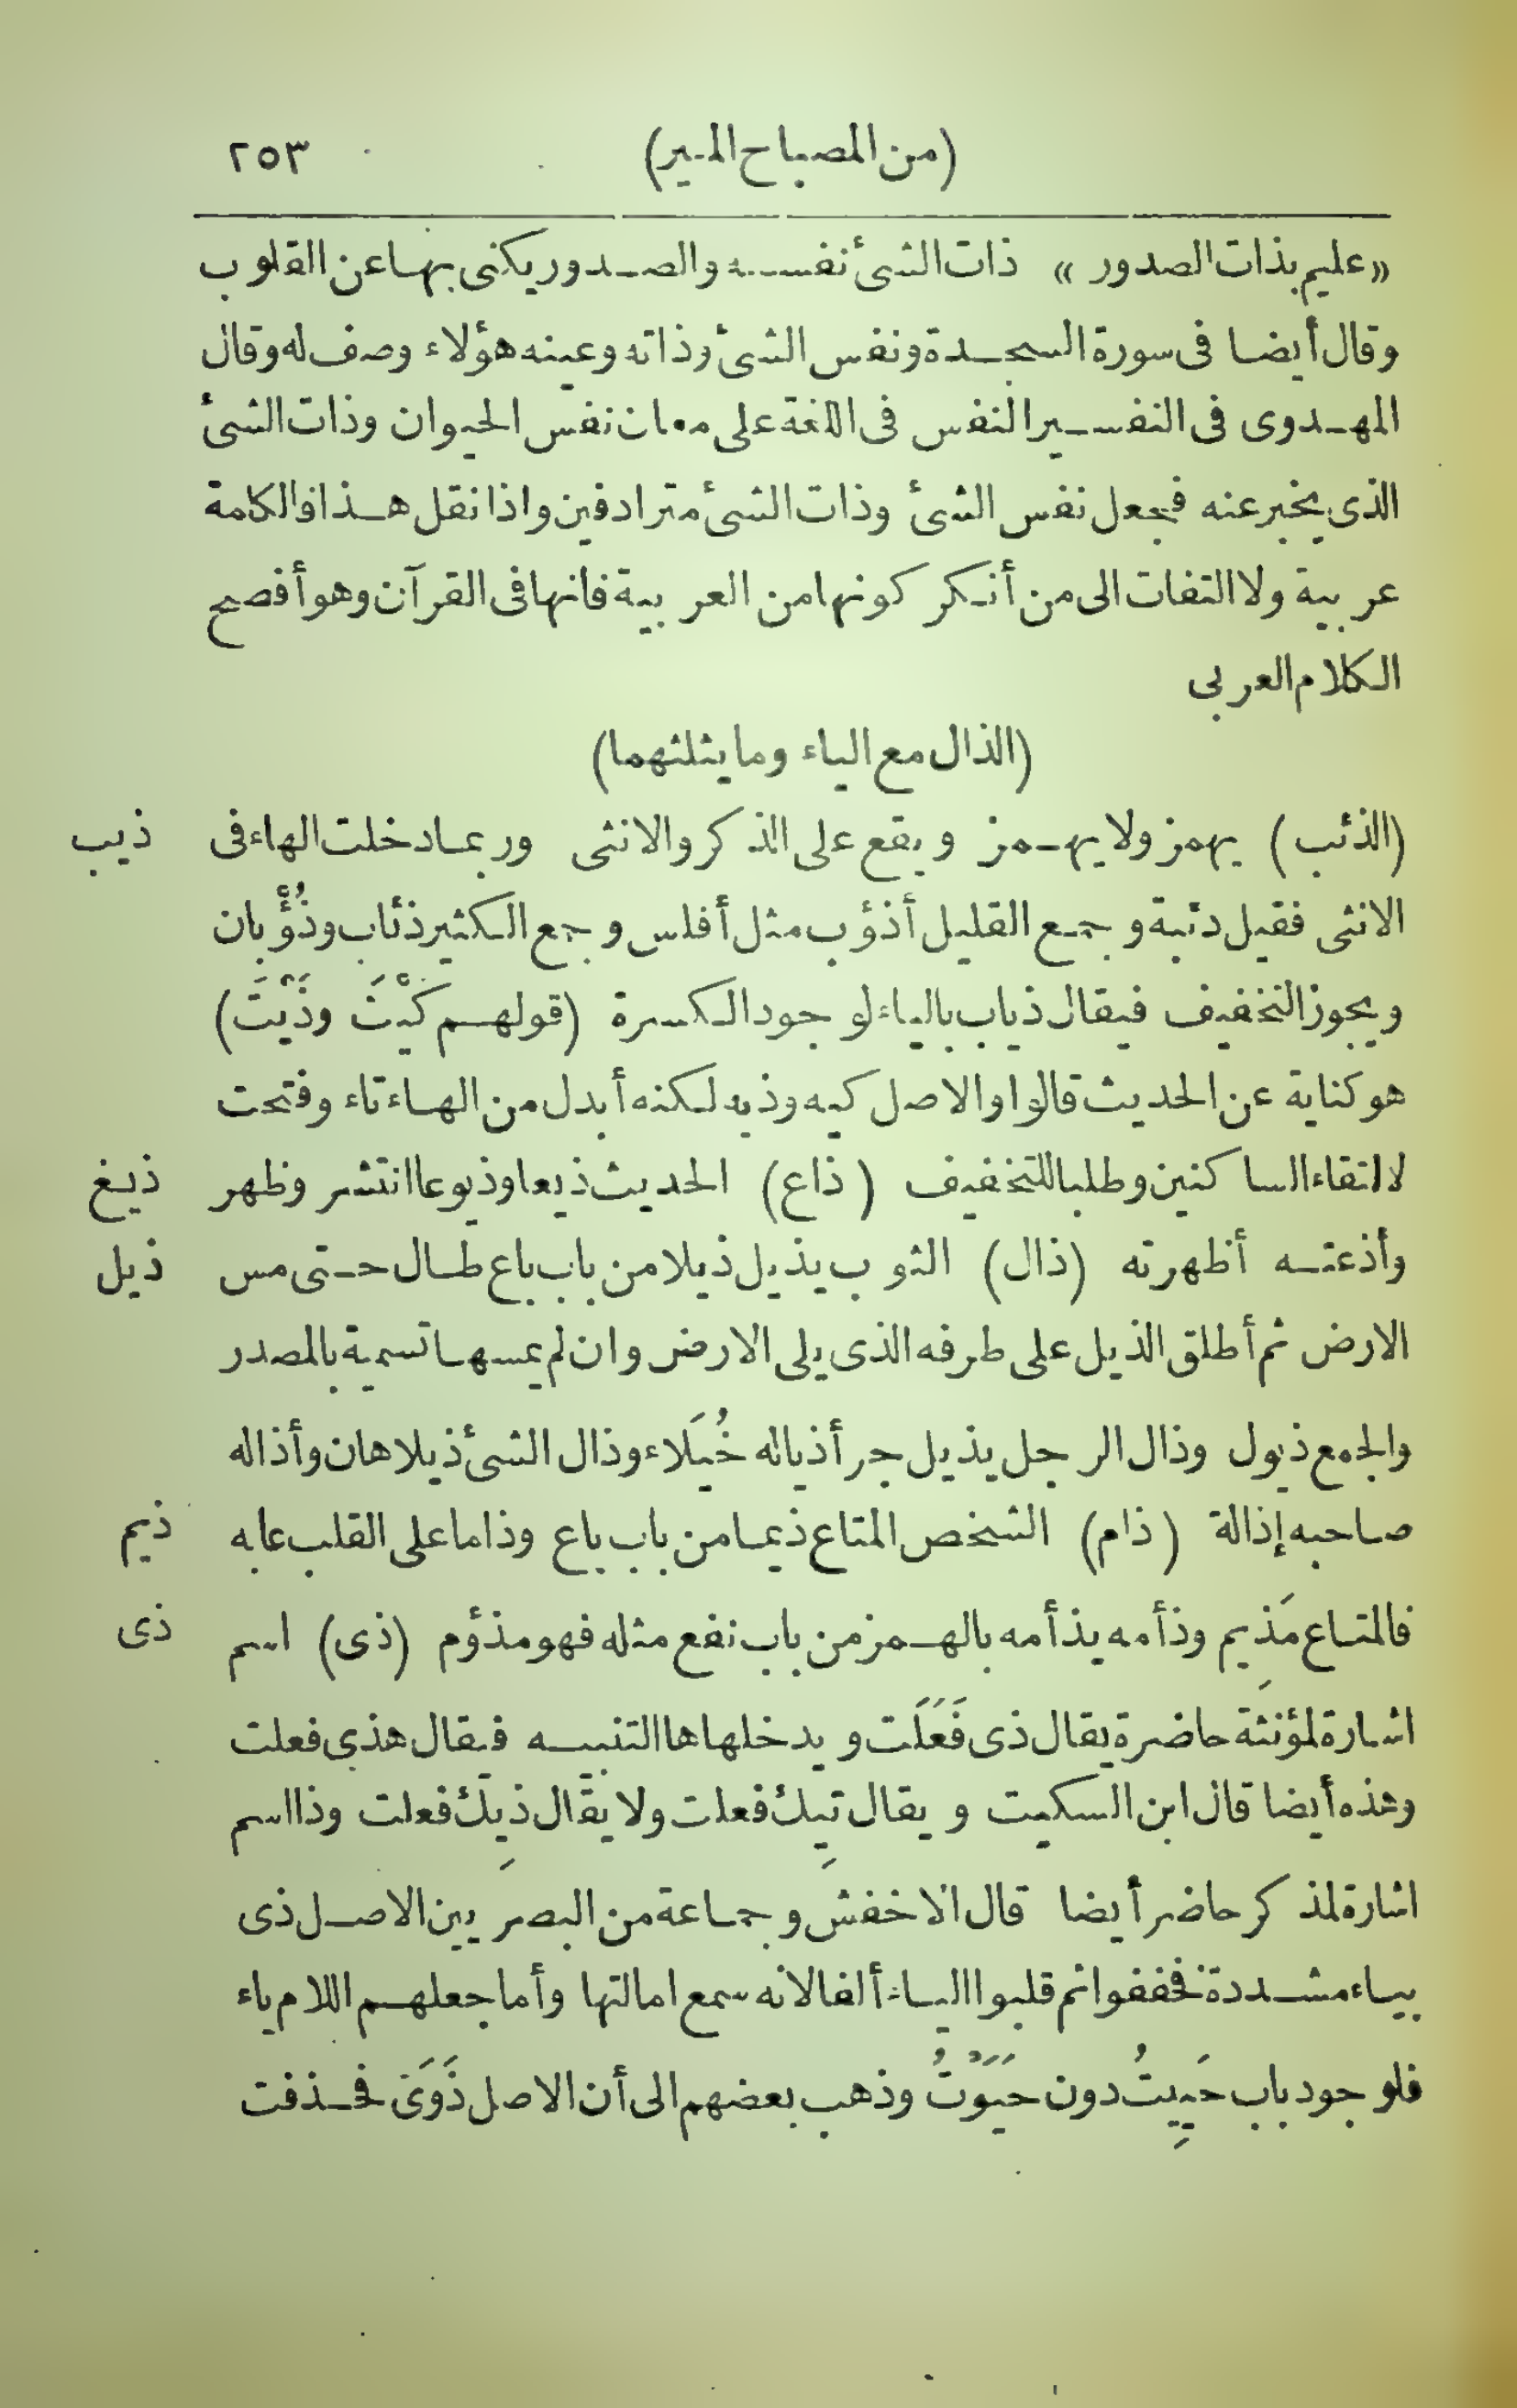 (من المصباح المنير) ٢٥٣
«عليم بذات الصدور» ذات الشئ نفسه والصدور يكنى بها عن القلوب
وقال أيضا فى سورة السجدة ونفس الشئ وذاته وعينه هؤلاء وصف له وقال
المهدوى فى التفسير النفس فى اللغة على معان نفس الحيوان وذات الشئ
الذى يخبر عنه فجعل نفس الشئ وذات الشئ مترادفين واذا نقل هذا فالكلمة
عربية ولا التفات الى من أنكر كونها من العربية فانها فى القرآن وهو أفصح
الكلام العربى
(الذال مع الياء وما يثلثهما)
(الذئب) يهمز ولا يهمز ويقع على الذكر والانثى وربما دخلت الهاء فى ذيب
الانثى فقيل ذئبة وجمع القليل أذؤب مثل أفلس وجمع الكثير ذئاب وذُؤْبان
ويجوز التخفيف فيقال ذياب بالياء لوجود الكسرة (قولهم كَيْتَ وذَيْتَ)
هو كناية عن الحديث قالوا والاصل كيه وذيه لكنه أبدل من الهاء تاء وفتحت
لالتقاء الساكنين وطلبا للتخفيف (ذاع) الحديث ذيعا وذيوعا انتشر وظهر ذيغ
وأذعته أظهرته (ذال) الثوب يذيل ذيلا من باب باع طال حتى مس ذيل
الارض ثم أطلق الذيل على طرفه الذى يلى الارض وان لم يمسها تسمية بالمصدر
والجمع ذيول وذال الرجل يذيل جر أذياله خُيَلاء وذال الشئ ذيلا هان وأذاله
صاحبه إذالة (ذام) الشخص المتاع ذيما من باب باع وذاما على القلب عابه ذيم
فالمتاع مَذِيم وذأمه يذأمه بالهمز من باب نفع مثله فهو مذؤم (ذى) اسم ذى
اشارة لمؤنثة حاضرة يقال ذى فَعَلَت ويدخلها ها التنبيه فيقال هذى فعلت
وهذه أيضا قال ابن السكيت ويقال تِيك فعلت ولا يقال ذِيك فعلت وذا اسم
اشارة لمذكر حاضر أيضا قال الاخفش وجماعة من البصريين الاصل ذى
بياء مشددة فخففوا ثم قلبوا الياء ألفا لانه سمع امالتها وأما جعلهم اللام ياء
فلوجود باب حَيِيتُ دون حَيَوْتُ وذهب بعضهم الى أن الاصل ذَوَىَ فحذفت